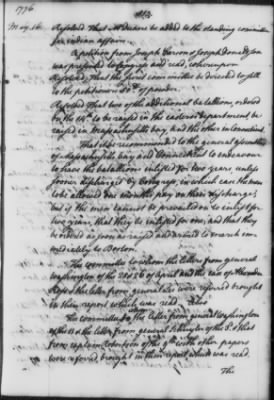 1776
May 16.
Resolved That 2 members be added to the standing committee
for indian affairs.
A petition from Joseph Carson & Joseph Donaldson
was presented to Congress and read, whereupon
Resolved, That the secret committee be directed to sell
to the petitioners of powder.
Resolved That two of the additional battalions, ordered
on the 14th to be raised in the eastern department, be
raised in Massachusetts bay, and the other in Connecticut.
That it be recommended to the general assemblies
of Massachusetts bay and Connecticut to endeavour
to have the battalions enlisted for two years, unless
sooner discharged by Congress, in which case the men
to be allowed one months pay on their discharge;
but if the men cannot be prevailed on to enlist for
two years, that they be enlisted for one, and that they
be ordered as soon as raised and armed to march im
mediately to Boston.
The committee to whom the letters from general
Washington of the and 26 of April and the
the letter from general Lee were referred brought
in their report which was read.
The committee to whom the letter from general Washington
of the 11 & the letter from general Schuyler of the 3. & that
from captain Robertson of the with other papers
were referred, brought in their report which was read.
The